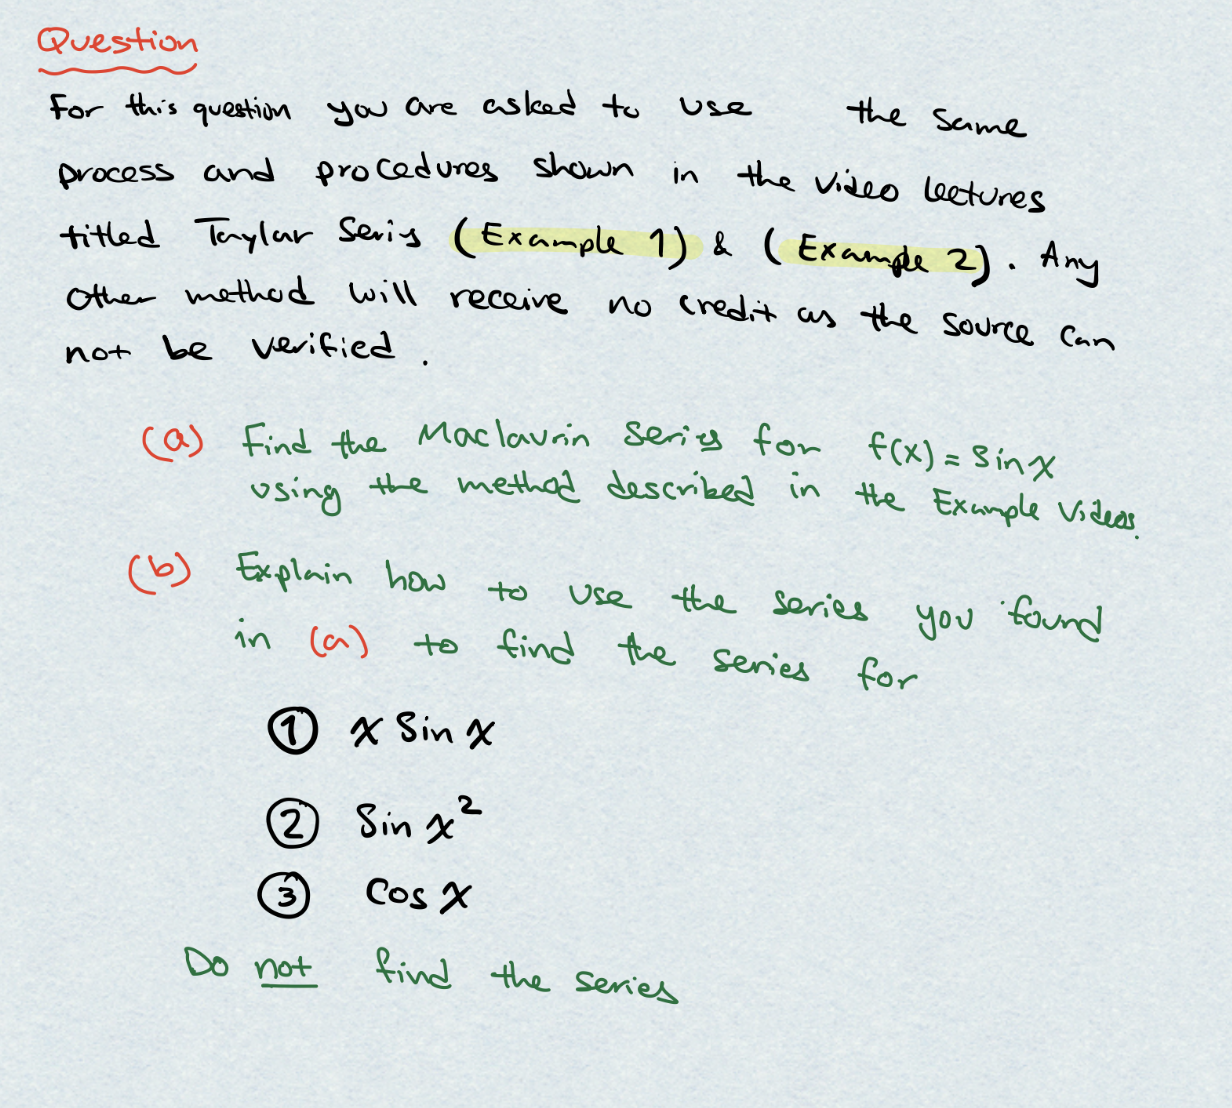 Question
For this question you are asked to use the same
process and procedures shown in the video lectures
titled Taylar Seris (Example 1) & (Example 2). Any
other method will receive no credit as the source can
not be verified.
(a) Find the Maclaurin series for f(x) = sin x
using the method described in the Example Videos.
(b) Explain how to use the series you found
in (a) to find the series for
① x sin x
② sin x²
③ cos x
Do not find the series